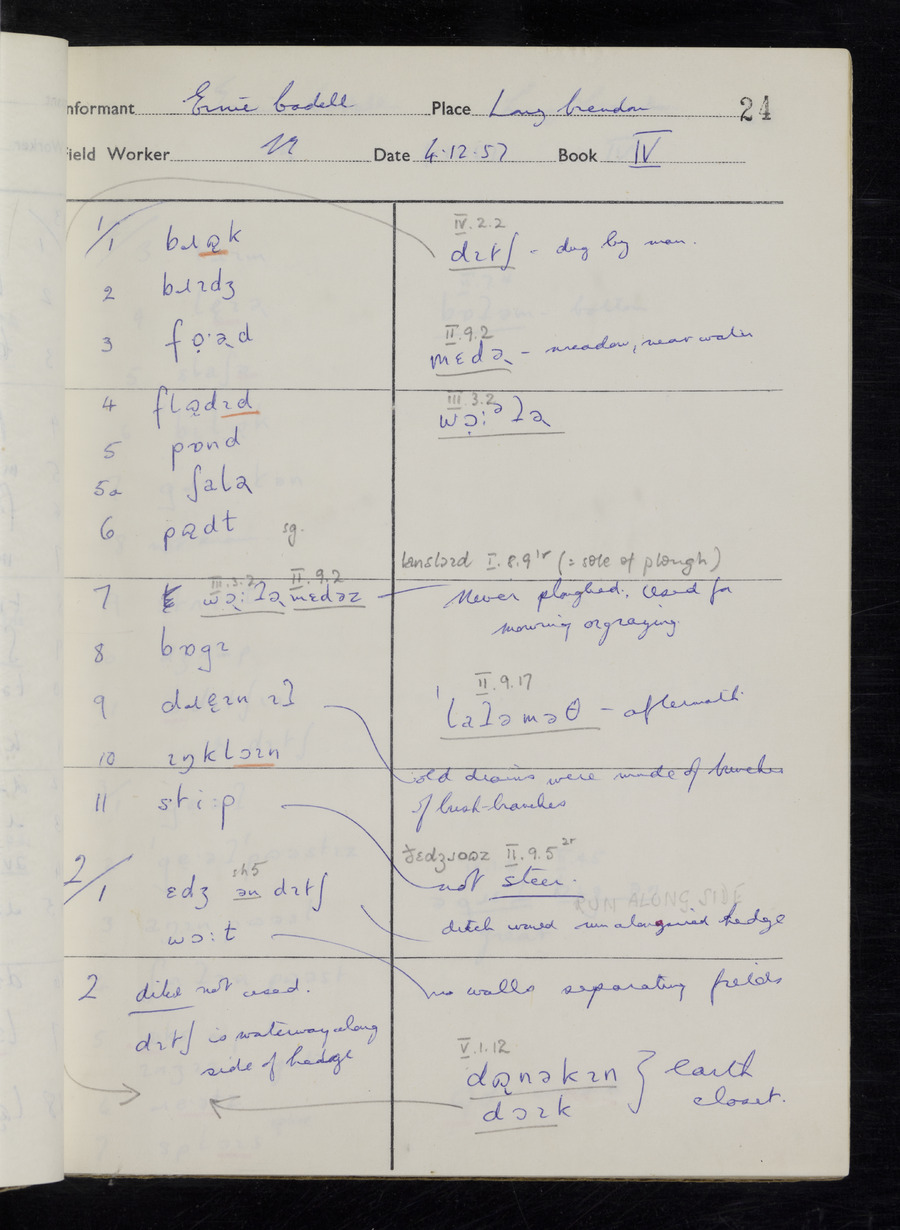 Informant Ernie Cadell Place Long Crendon 24
Field Worker Date 4.12.57 Book IV
1/1 bɹʊ̠k
2 bɹɪdʒ
3 fɔ̣·əd
4 flʊ̠dɪd
5 pɒnd
5a ʃalə
6 pʊ̠dɫ sg.
III.3.2 II.9.2
7 wɔ̣:ɫə mɛdəz
8 bɒgɪ
9 dɹɛ̣ɪn ɪɫ
10 ɪŋklɔɪn
11 sti:p
2/1 ɛdʒ ən dɪtʃ
sh5
wɔ:ɫ
2 dike not used.
dɪtʃ is waterway along
side of hedge
IV.2.2
dɪtʃ - dug by man.
II.9.2
mɛdə - meadow, near water
III.3.2
wɔ̣:ᵊɫə
lanslɔɪd I.8.9ⁱʳ (= sole of plough)
Never ploughed; used for
mowing or grazing
II.9.17
ˈlaɫəməθ - aftermath
old drains were made of bunches
of bush-branches
II.9.5
not steer.
RUN ALONG SIDE
ditch would run alongside hedge
no walls separating fields
V.1.12
dʊ̠nəkɪn } earth
dɔɪk closet.